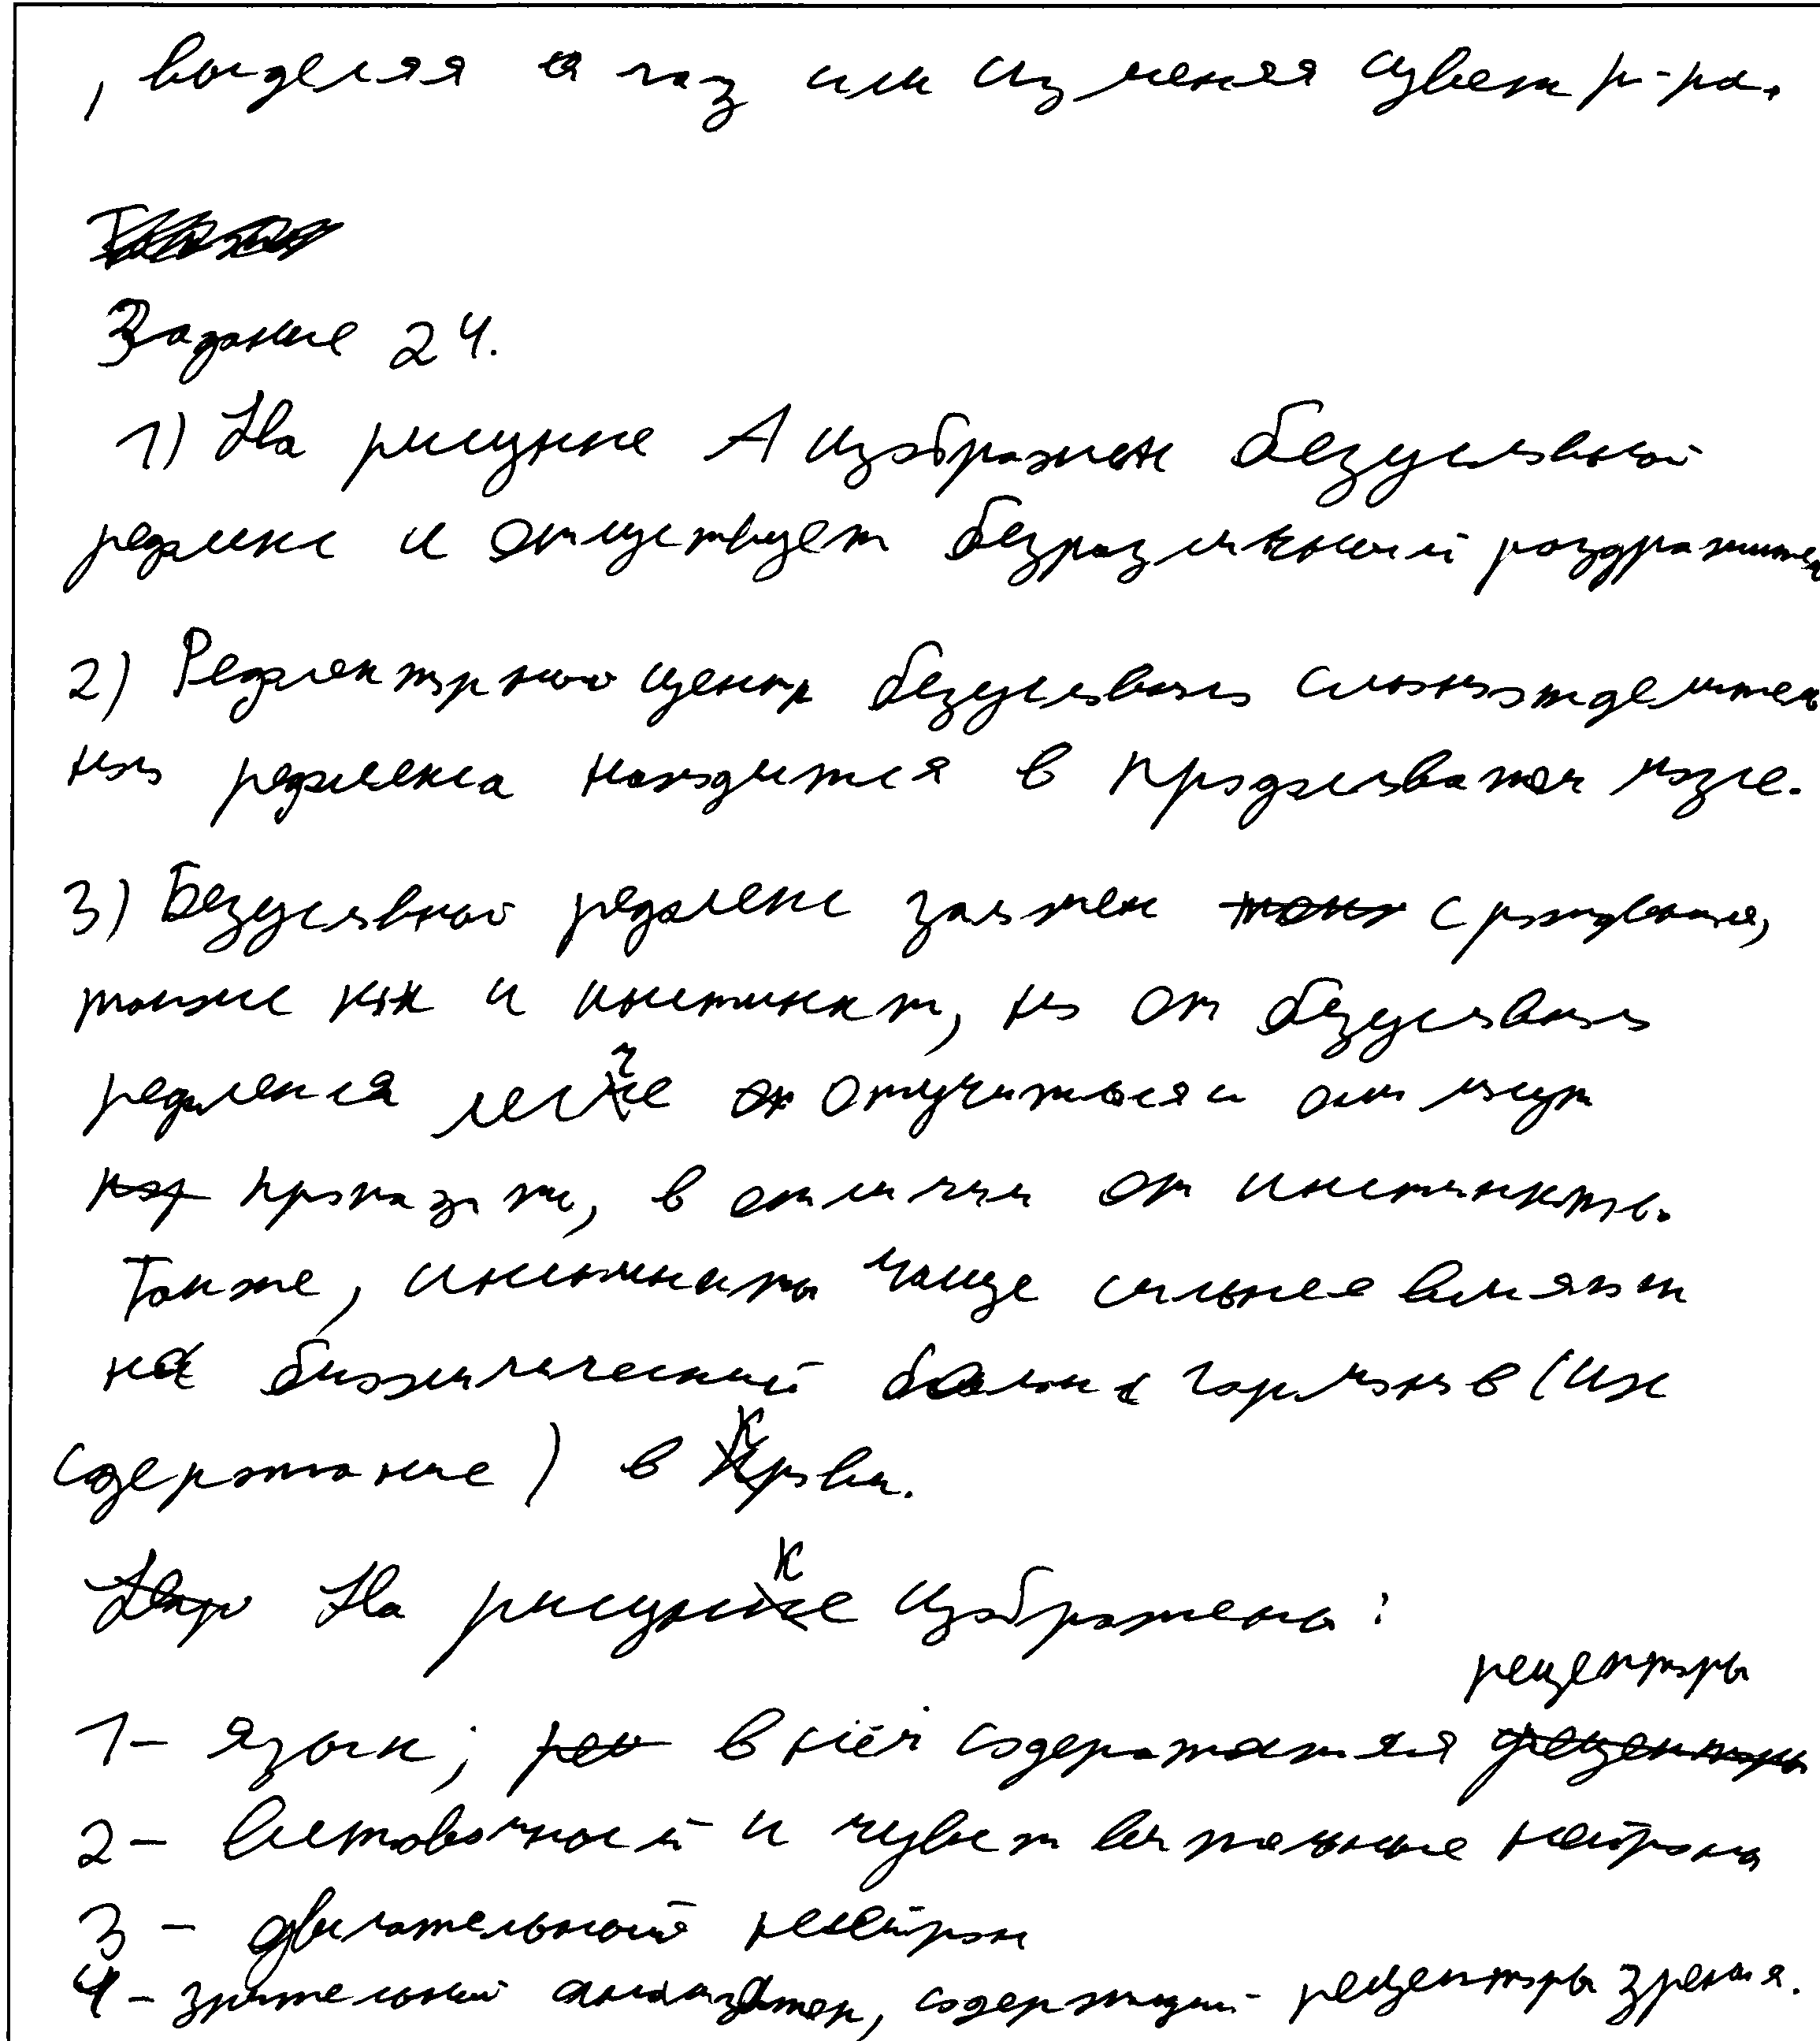 , выделяя газ или изменяя цвет р-ра.
Задание 24.
1) На рисунке А изображен безусловной
рефлекс и отсутствует безразличный раздражитель
2) Рефлекторной центр безусловного слюноотделитель
ного рефлекса находится в продолговатом мозге.
3) Безусловной рефлекс заложен с рождения,
также как и инстинкт, но от безусловного
рефлекса легче отучиться и он может
пропасть, в отличии от инстинктов.
Также, инстинкты чаще сильнее влияют
на биохимический баланс гормонов (их
содержание) в крови.
На рисунке изображены:
1- язык; в нём содержатся рецепторы
2- вставочной и чувствительные нейроны
3 - двигательный нейрон
4 - зрительный анализатор, содержащий рецепторы зрения.